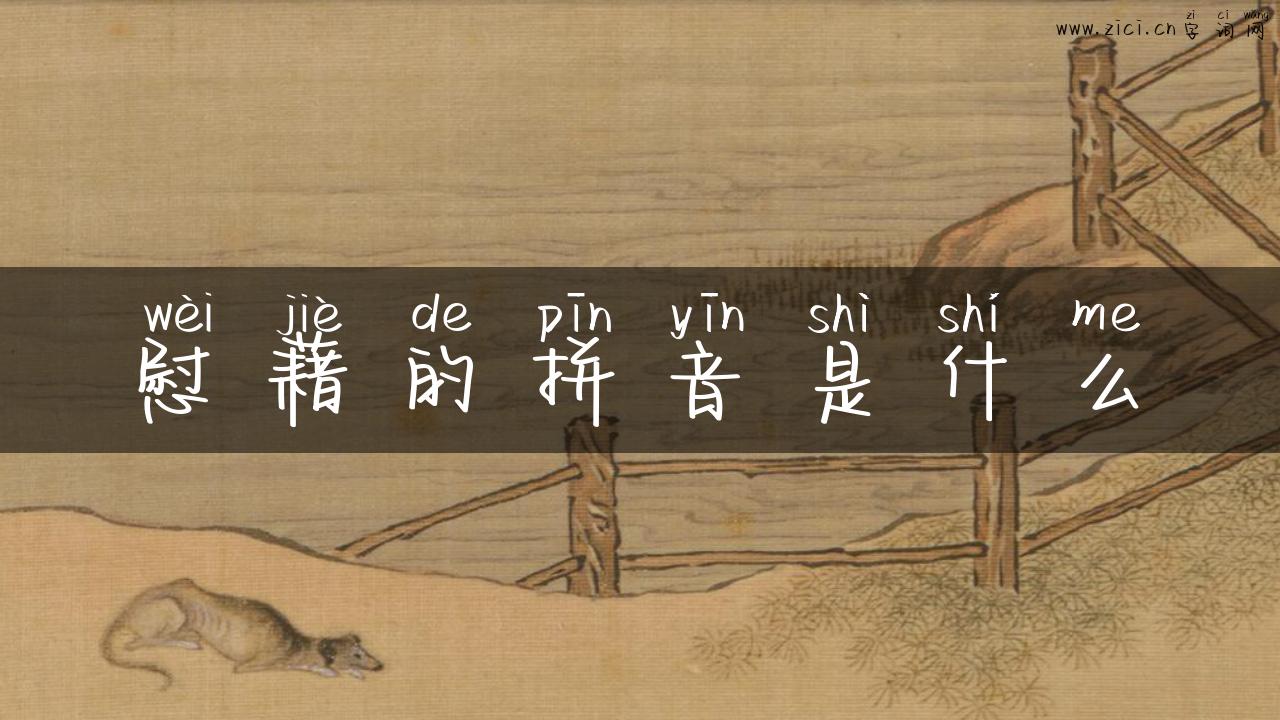 zi ci wang
www.zici.cn 字词网
wèi jiè de pīn yīn shì shí me
慰藉的拼音是什么